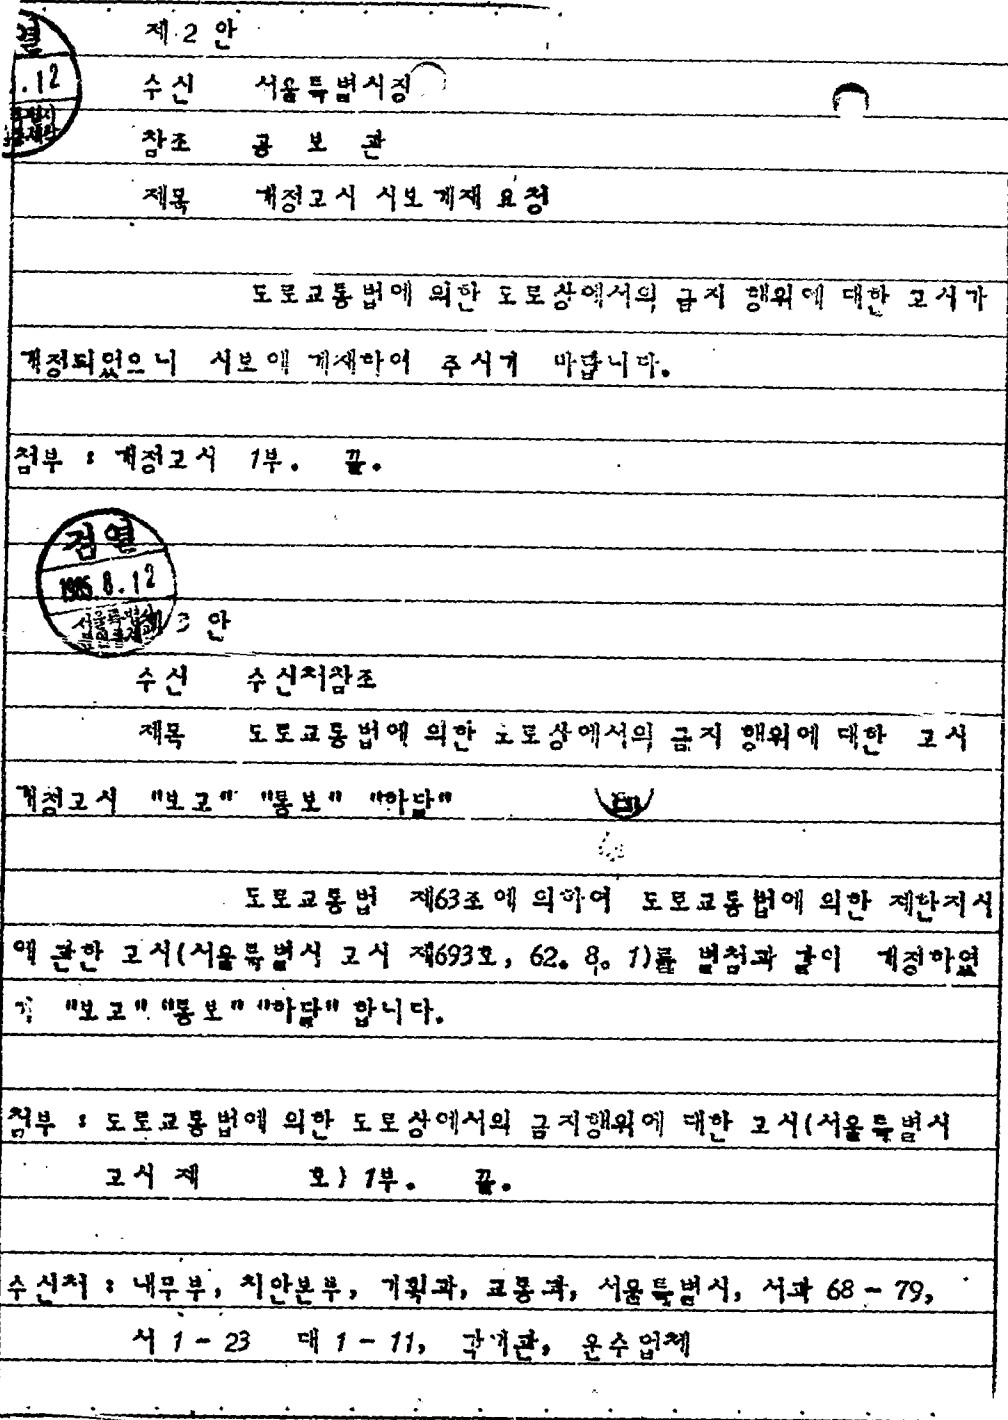 제 2 안
수신 서울특별시장
참조 공 보 관
제목 개정고시 시보 게재 요청
도로교통법에 의한 도로상에서의 금지 행위에 대한 고시가
개정되었으니 시보에 게재하여 주시기 바랍니다.
첨부 : 개정고시 1부. 끝.
검열
1985. 8. 12
서울특별시
3 안
수신 수신처참조
제목 도로교통법에 의한 도로상에서의 금지 행위에 대한 고시
개정고시 "보고" "통보" "하달"
도로교통법 제63조에 의하여 도로교통법에 의한 제한지시
에 관한 고시(서울특별시 고시 제693호, 62. 8. 1)를 별첨과 같이 개정하였
기 "보고" "통보" "하달" 합니다.
첨부 : 도로교통법에 의한 도로상에서의 금지행위에 대한 고시(서울특별시
고시 제 호) 1부. 끝.
수신처 : 내무부, 치안본부, 기획과, 교통과, 서울특별시, 서과 68 - 79,
서 1 - 23 대 1 - 11, 각기관, 운수업체